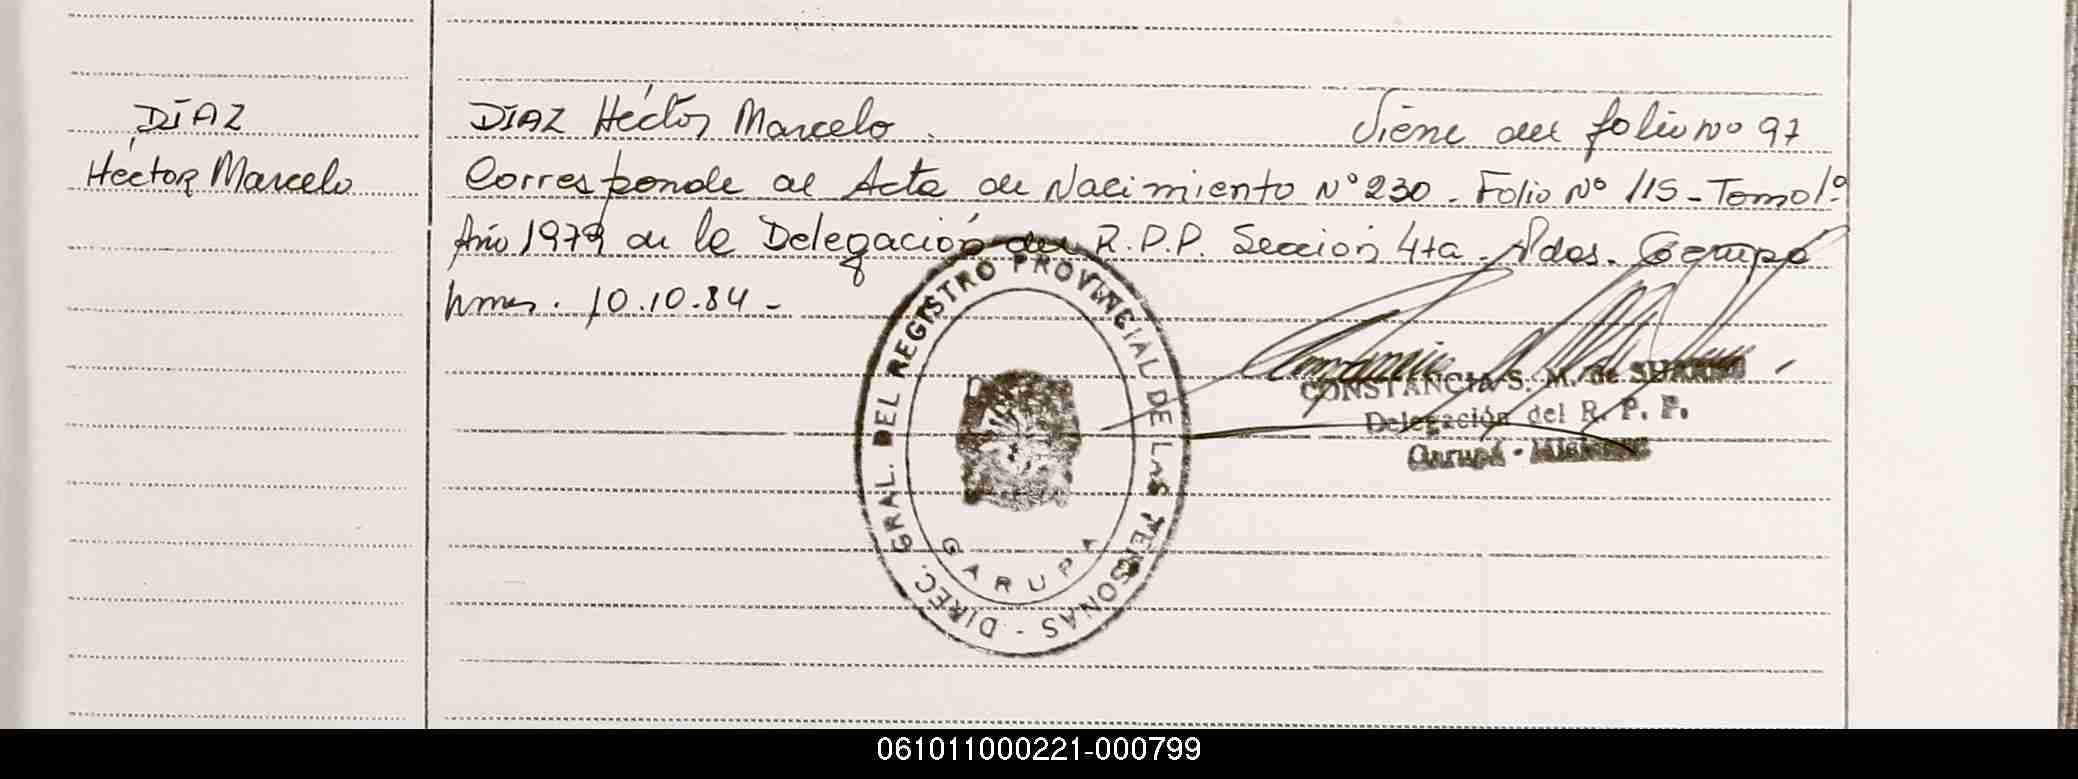 DÍAZ
Héctor Marcelo
DÍAZ Héctor Marcelo.
Viene del folio nº 97
Corresponde al Acta de Nacimiento Nº 230. Folio Nº 115 - Tomo 1º
Año 1979 de la Delegación del R.P.P. Sección 4ta. Pdas. Garupá
Mnes. 10.10.84 -
DIREC. GRAL. DEL REGISTRO PROVINCIAL DE LAS PERSONAS -
GARUPA
CONSTANCIA S. M. de
Delegación del R. P. P.
Garupá - Misiones
061011000221-000799